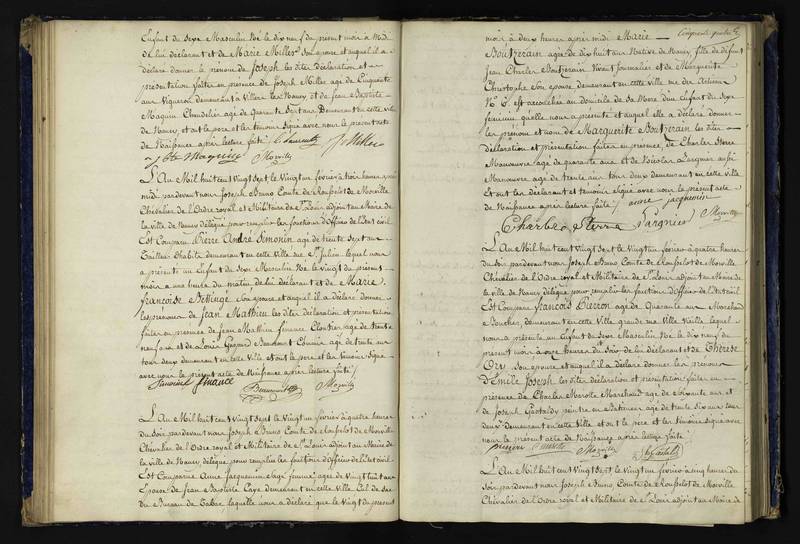 Enfant du Sexe Masculin Né le dix neuf du present mois à Midi
de lui déclarant et de Marie Miller Son épouse et auquel il a
déclaré donner le prénom de Joseph les dites déclaration et
présentation faites en presence de Joseph Miller agé de Cinquante
ans Vigneron demeurant à Villers les Nancy et de Jean Baptiste
Maguin Chandelier agé de Quarante Sept ans Demeurant en cette ville
de Nancy, et ont le pere et les témoins Signé avec nous le présent acte
de Naissance après lecture faite
J. Miller
Morville
L'An Mil huit cent Vingt Sept le Vingt un février à trois heures après
midi pardevant nous Joseph Bruno Comte de Rousselot de Morville
Chevalier de l'Ordre royal et Militaire de St Louis adjoint au Maire de
la ville de Nancy délégué pour remplir les fonctions d'Officier de l'Etat civil
Est Comparu Pierre André Simonin agé de trente Sept ans
Tailleur d'habits demeurant en cette ville rue St Julien lequel nous
a présenté un Enfant du Sexe Masculin Né le Vingt du présent
mois à une heure du matin de lui déclarant et de Marie
françoise Bettingé Son épouse et auquel il a déclaré donner
les prenoms de Jean Mathieu les dites déclaration et présentation
faites en presence de Jean Mathieu finance Cloutier agé de trente
neuf ans et de Louis Bonnant Commis agé de trente
tous deux demeurant en cette Ville et ont le pere et les témoins Signé
avec nous le présent acte de Naissance après lecture faite
Simonin finance
Morville
L'An Mil huit cent Vingt Sept le Vingt un février à quatre heures
du Soir pardevant nous Joseph Bruno Comte de Rousselot de Morville
Chevalier de l'Ordre royal et Militaire de St Louis adjoint au Maire de
la ville de Nancy délégué pour remplir les fonctions d'Officier de l'Etat civil
Est Comparue Anne Jacquemin Sage femme agée de Vingt huit ans
Epouse de Jean Baptiste Caye demeurant en cette Ville Cul de Sac
du Bureau de Tabac laquelle nous a déclaré que le Vingt du present
mois à deux heures après midi Marie
Boutserain agée de dix huit ans Native de Nancy, fille de défunt
Jean Charles Boutserain Vivant Journalier et de Marguerite
Christophe Son épouse demeurant en cette ville rue des Artisans
No 6, est accouchée au domicile de Sa Mere d'un Enfant du Sexe
féminin qu'elle nous a présenté et auquel elle a déclaré donner
les prenom et nom de Marguerite Boutserain les dites
déclaration et présentation faites en presence de Charles Sterre
Manoeuvre agé de quarante ans et de Nicolas Largnier aussi
Manoeuvre agé de trente un ans tous deux demeurant en cette ville
et ont les déclarant et témoins Signé avec nous le présent acte
de Naissance après lecture faite anne jacquemin
Charles Sterre Largnier Morville
L'An Mil huit cent Vingt Sept le Vingt un février à quatre heures
du Soir pardevant nous Joseph Bruno Comte de Rousselot de Morville
Chevalier de l'Ordre royal et Militaire de St Louis adjoint au Maire de
la ville de Nancy délégué pour remplir les fonctions d'Officier de l'Etat civil
Est Comparu françois Pierron agé de Quarante ans Marchand
Boucher demeurant en cette Ville grande rue Ville Vieille lequel
nous a présenté un Enfant du Sexe Masculin Né le dix neuf du
présent mois à onze heures du Soir de lui déclarant et de Thérèse
Son épouse et auquel il a déclaré donner les prénoms
d'Emile Joseph les dites déclaration et présentation faites en
présence de Charles Marotte Marchand agé de Soixante ans et
de Joseph Gastaldy peintre en Batiment agé de trente Six ans tous
deux Demeurant en cette Ville et ont le pere et les témoins Signé avec
nous le présent acte de Naissance après lecture faite
pierron Marotte Morville
J. Gastaldy
L'An Mil huit cent Vingt Sept le Vingt un février à cinq heures du
Soir pardevant nous Joseph Bruno, Comte de Rousselot de Morville
Chevalier de l'Ordre royal et Militaire de St Louis adjoint au Maire de